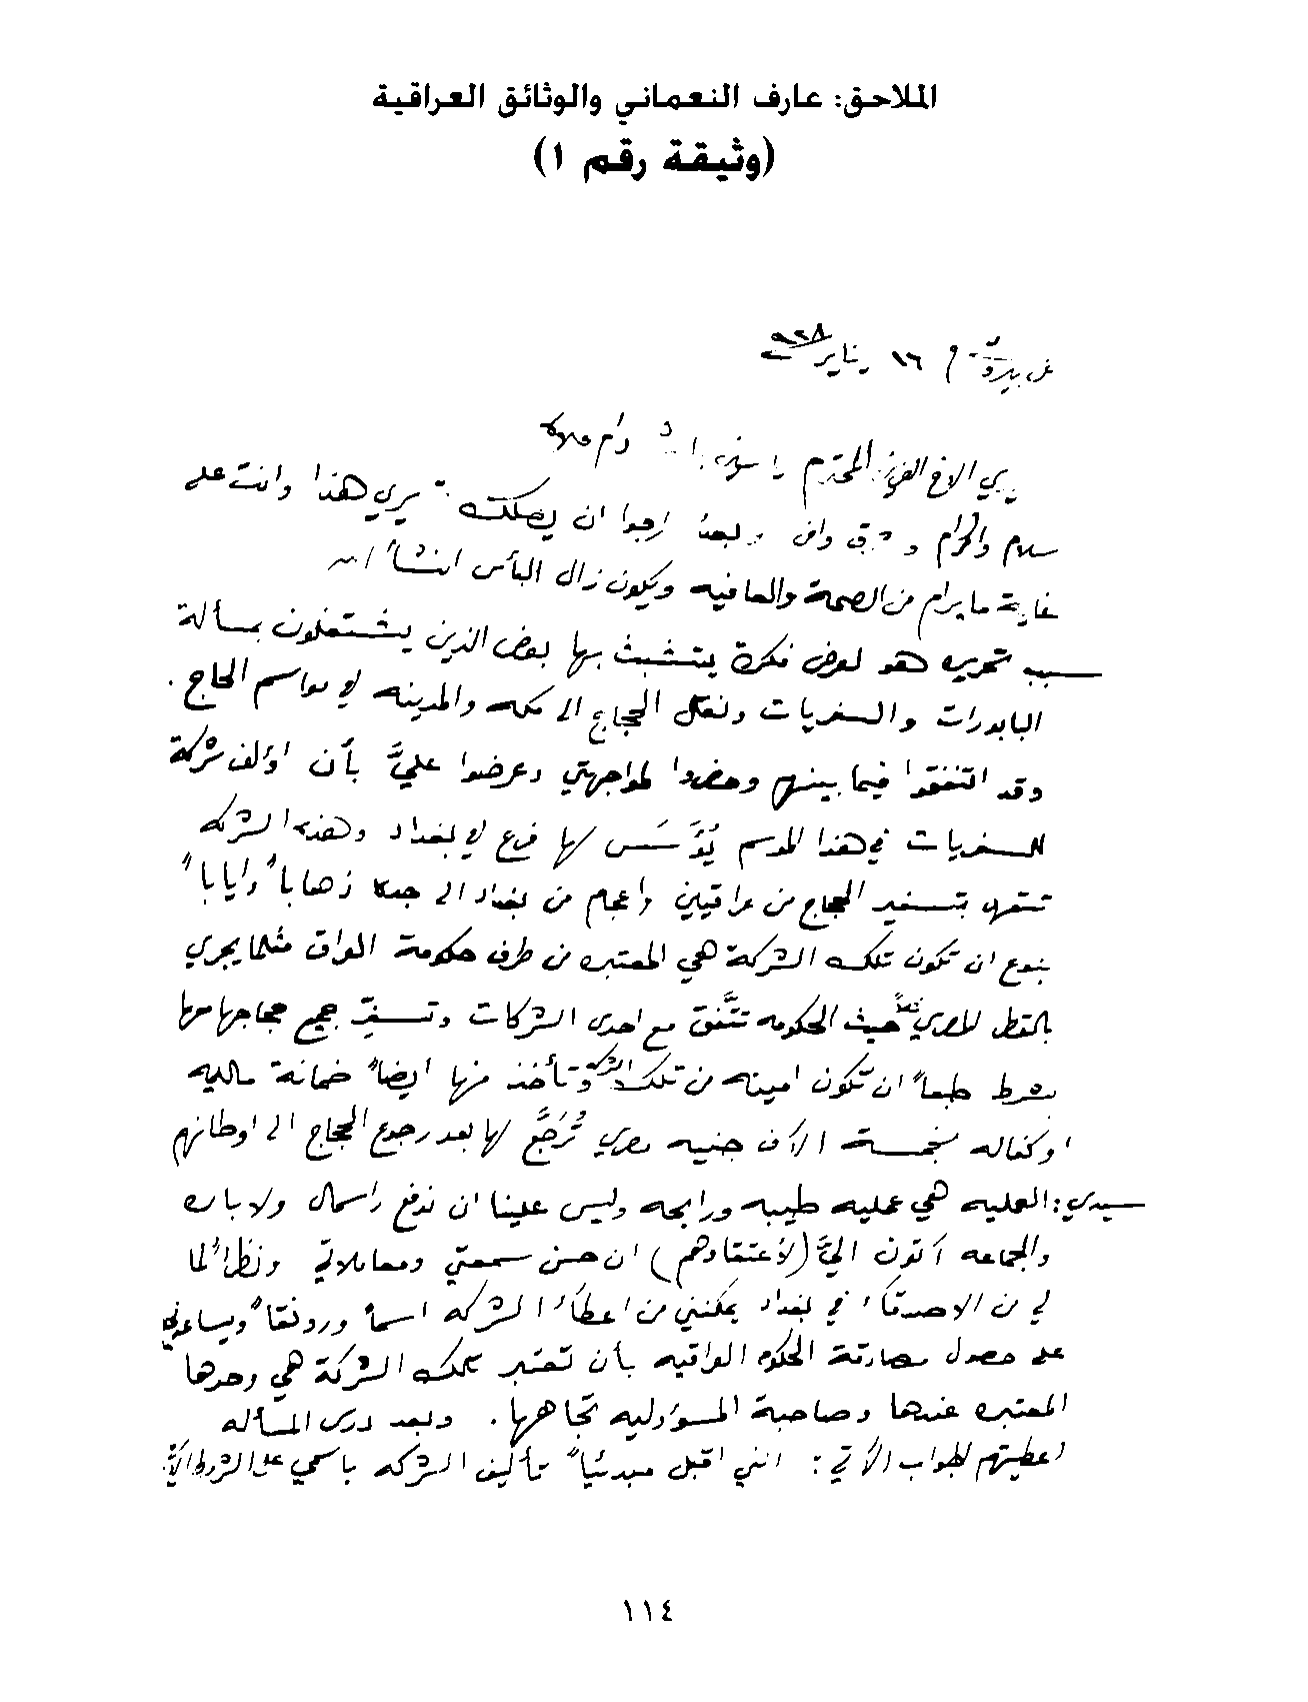 الملاحق: عارف النعماني والوثائق العراقية
(وثيقة رقم ١)
عن بيروت في ١٦ يناير ٩٢٨
سيدي الاخ العزيز المحترم دام علاه
سلام واكرام وبعد ارجوا ان يصلك تحريري هذا وانت على
غاية ما يرام من الصحة والعافيه ويكون زال البأس انشأ الله
سبب تحريره هو لعرض فكرة يتشبث بها بعض الذين يشتغلون بمسألة
البابورات والسفريات ونقل الحجاج الى مكه والمدينه في مواسم الحاج.
وقد اتفقوا فيما بينهم وحضروا لمواجهتي وعرضوا عليَّ بأن اؤلف شركة
للسفريات في هذا الموسم يُؤَسَس لها فرع في بغداد وهذه الشركه
تتعهد بتسفير الحجاج من عراقيين واعجام من بغداد الى جده ذهاباً واياباً
بنوع ان تكون تلك الشركة هي المعتبره من طرف حكومة العراق مثلما يجري
بالقطر المصري مثلاً حيث الحكومه تتَّفق مع احدى الشركات وتسفّر جميع حجاجها معها
بشرط طبعاً ان تكون امينه من تلك الشركة وتأخذ منها ايضاً ضمانة ماليه
او كفاله بخمسة الآف جنيه مصري تُرَجَّع لها بعد رجوع الحجاج الى اوطانهم
سيدي: العمليه هي عمليه طيبه ورابحه وليس علينا ان ندفع راسمال ولا باره
والجماعه آتون اليَّ (لأعتقادهم) ان حسن سمعتي ومعاملاتي ونظراً لما
لي من الاصدقاء في بغداد يمكنني من اعطاء الشركه اسماً ورونقاً ويساعدني
على حصول مصادقة الحكومه العراقيه بأن تعتبر تلك الشركة هي وحدها
المعتبره عندها وصاحبة المسؤوليه تجاهها. وبعد درس المسأله
اعطيتهم الجواب الآتي: انني اقبل مبدئياً تأليف الشركه باسمي على الشروط الآتية
١١٤